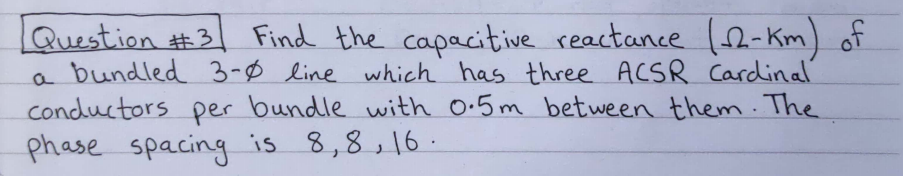 Question #3 Find the capacitive reactance (Ω-Km) of
a bundled 3-Ø line which has three ACSR Cardinal
conductors per bundle with 0.5m between them. The
phase spacing is 8, 8, 16.